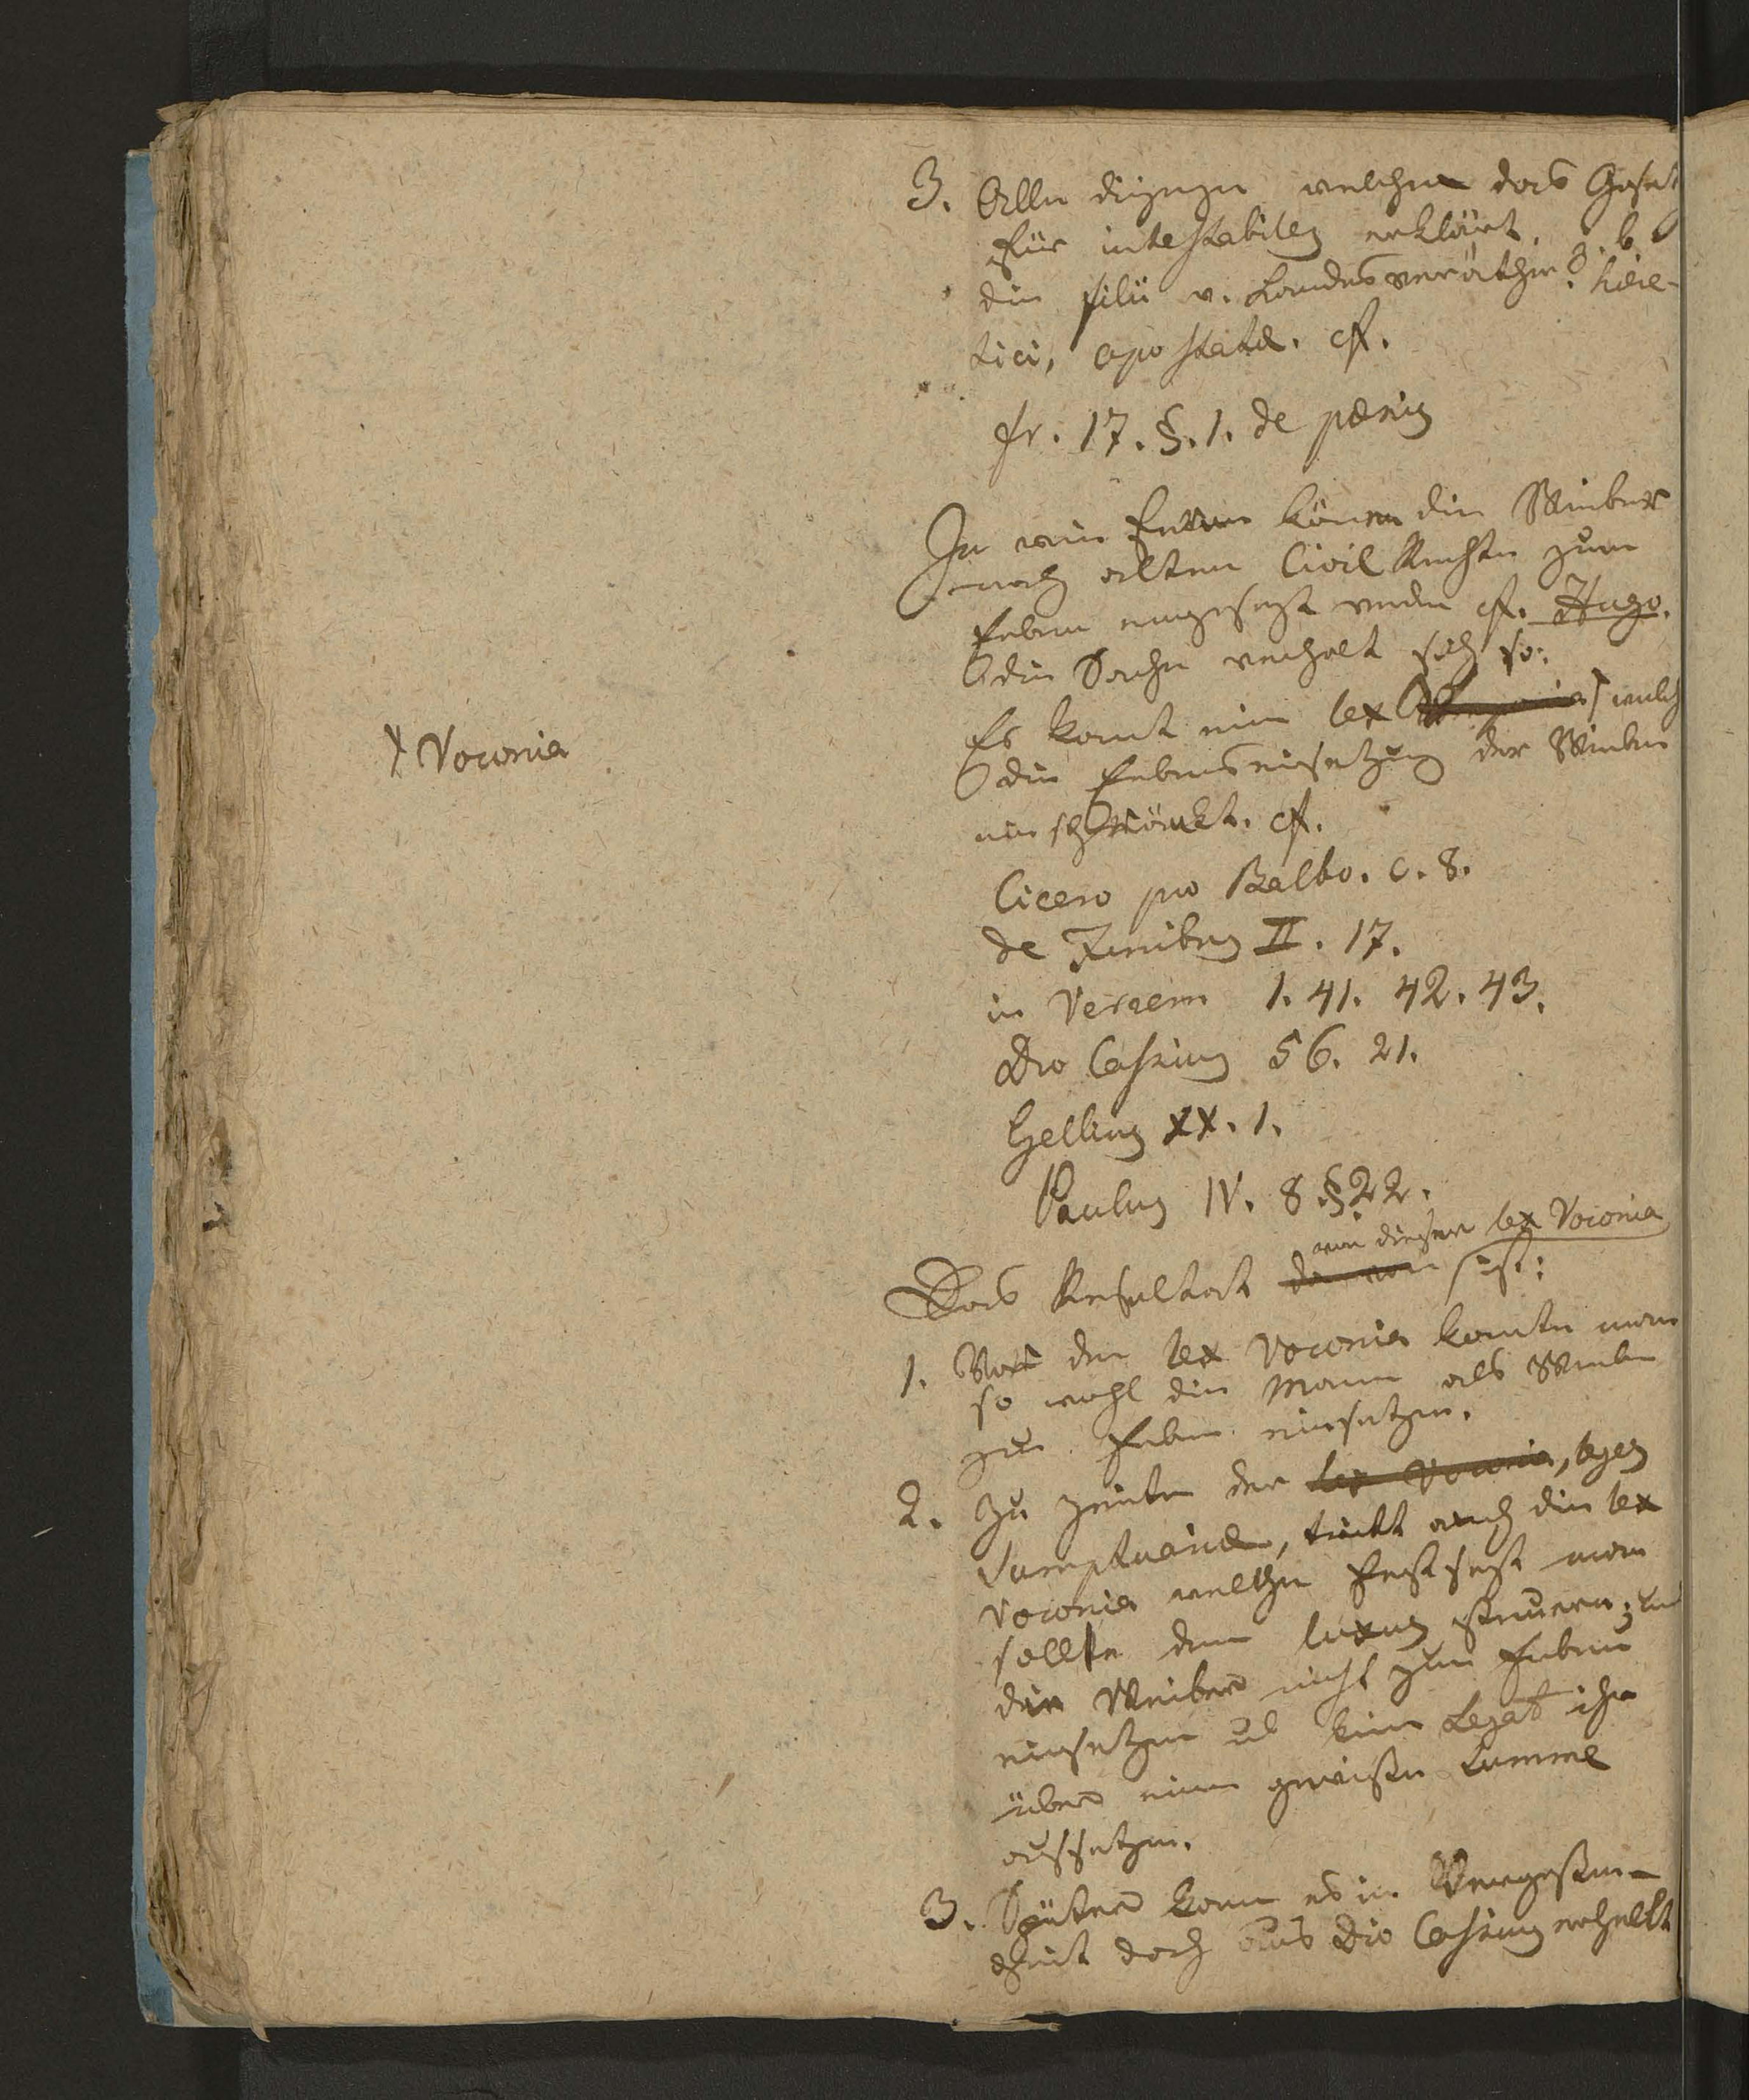 3. Alle diejenige welche das Gesetz
für intestabiles erklärt. z. b.
die filii v. Landesverräther, häre-
tici, apostatæ. cf.
fr. 17. §. 1. de pœnis
In wie fern können die Weiber
nach altem Civil Rechte zum
Erben eingesezt werden cf. Hugo.
die Sache verhält sich so:
Es kömt eine lex welch
+ Voconia
die Erbenseinsetzung der Weiber
einschränkt. cf.
Cicero pro Balbo. c. 8.
de Finibus II. 17.
in Verrem 1. 41. 42. 43.
Dio Cassius 56. 21.
Gellius XX. 1.
Paulus IV. 8 §. 22.
von dieser lex Voconia
Das Resultat davon ist:
1. Vor der lex Voconia konnte man
so wohl die Mann als Weiber
zu Erben einsetzen.
2. Zu Zeiten der lex Voconia, leges
sumptuariæ, tritt auch die lex
Voconia welche festsezt man
sollte dem luxus steuern, und
die Weiber nicht zum Erben
einsetzen od kein Legat ihr
über eine gewisse Summe
aussetzen.
3. Später kam es in Vergessen-
heit doch aus Dio Cassius erhellt